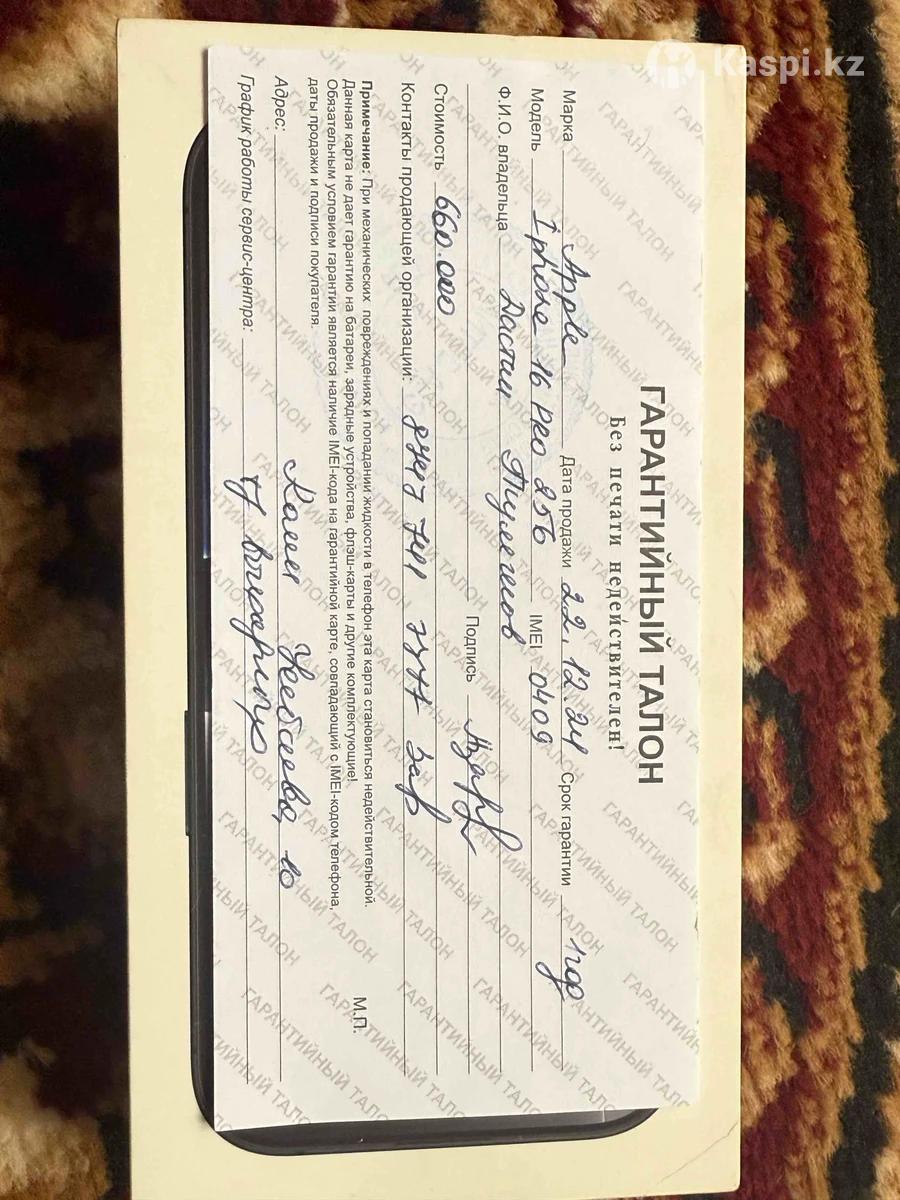 Kaspi.kz
ГАРАНТИЙНЫЙ ТАЛОН
Без печати недействителен!
Марка Apple Дата продажи 22.12.24 Срок гарантии 1 год
Модель Iphone 16 PRO 256 IMEI 0409
Ф.И.О. владельца Дастан
Подпись
Стоимость 660.000
Контакты продающей организации:
Примечание: При механических повреждениях и попадании жидкости в телефон эта карта становиться недействительной.
Данная карта не дает гарантию на батареи, зарядные устройства, флэш-карты и другие комплектующие!
Обязательным условием гарантии является наличие IMEI-кода на гарантийной карте, совпадающий с IMEI-кодом телефона,
даты продажи и подписи покупателя.
М.П.
Адрес: 10
График работы сервис-центра: